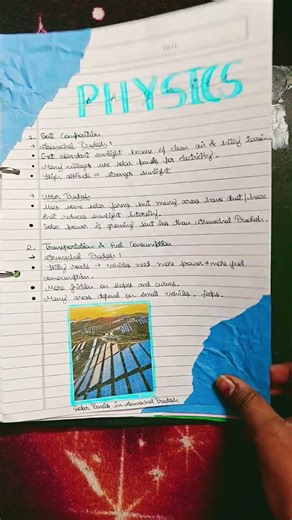 PHYSICS
1. Soil Composition
→ Arunachal Pradesh :
• Get abundant sunlight because of clean air & hilly terrain.
• Many villages use solar panels for electricity.
• High altitude = stronger sunlight
→ Uttar Pradesh
• Uses some solar farms but many areas have dust/haze
that reduces sunlight intensity.
• Solar power is growing but less than Arunachal Pradesh.
2. Transportation & Fuel Consumption
→ Arunachal Pradesh :
• Hilly roads → vehicles need more power + more fuel
consumption
• More friction on slopes and curves.
• Many areas depend on small vehicles, jeeps.
Solar Panels in Arunachal Pradesh